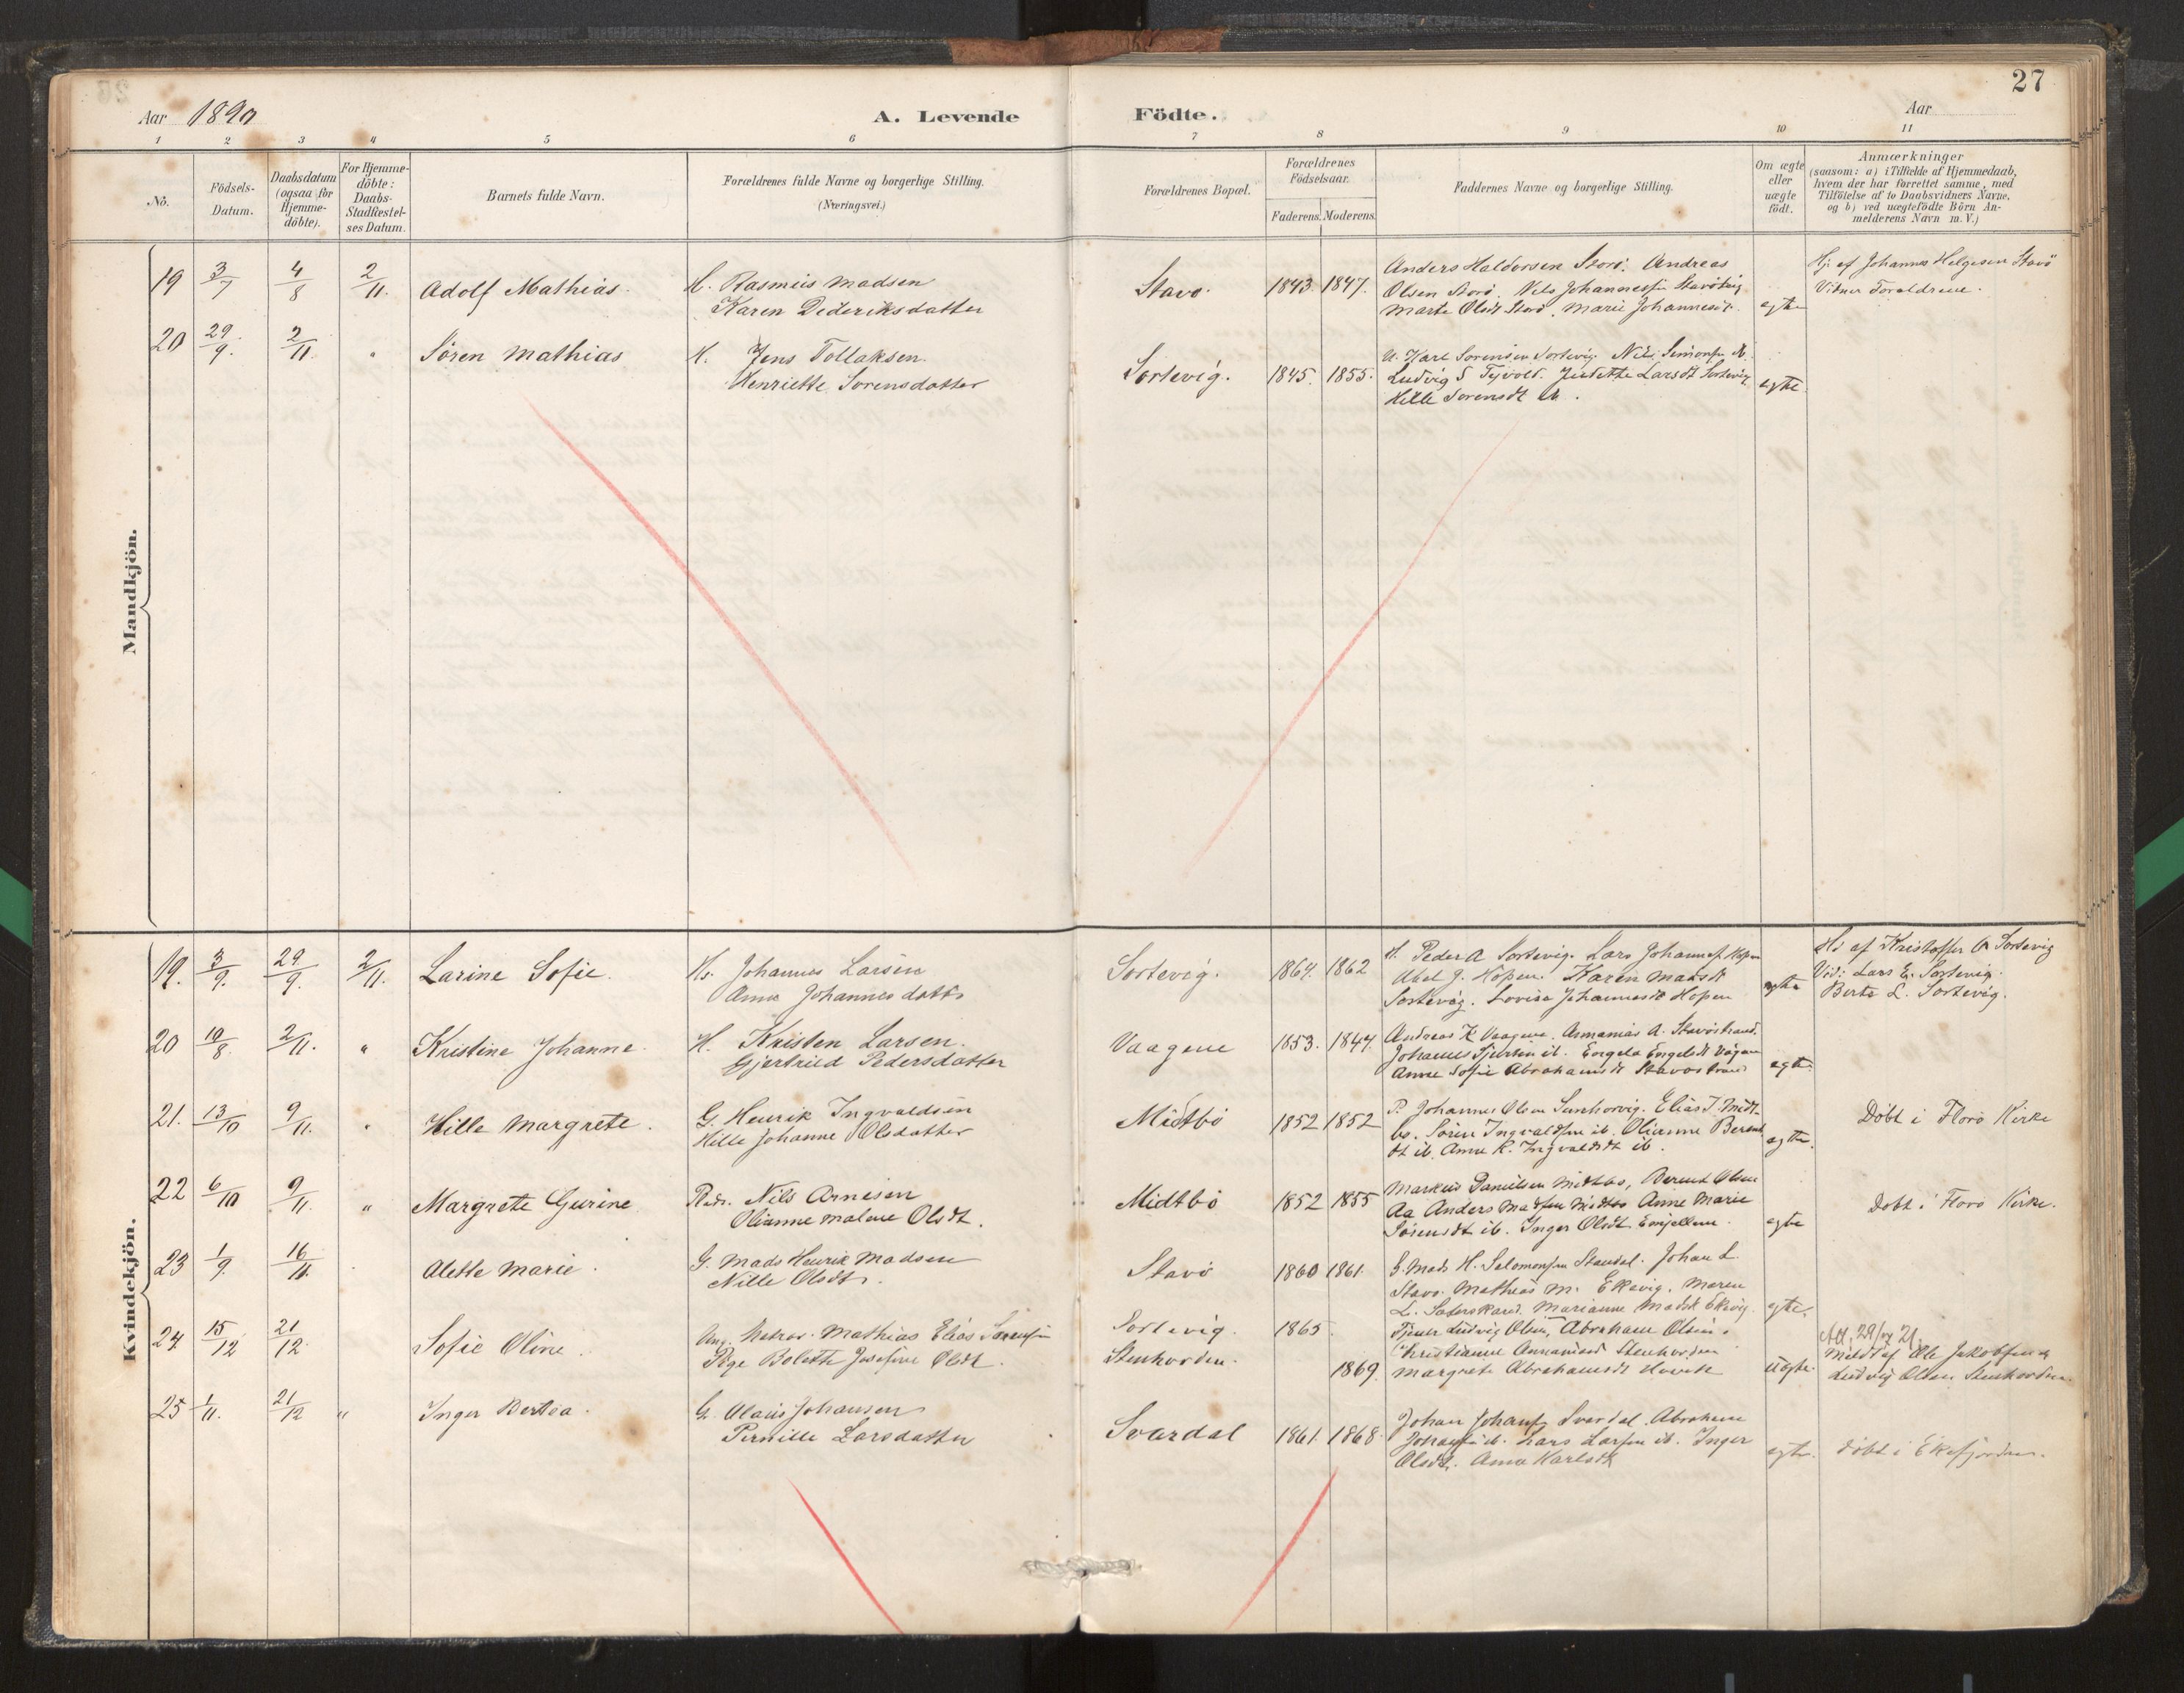 27
Aar 1890
A. Levende
Födte.
Aar
1 2 3 4 5 6 7 8 9 10 11
No.
Födsels-Datum.
Daabsdatum (ogsaa for Hjemme-döbte).
For Hjemme-döbte: Daabs-Stadfæstel-ses Datum.
Barnets fulde Navn.
Forældrenes fulde Navne og borgerlige Stilling.
(Næringsvei.)
Forældrenes Bopæl.
Forældrenes Födselsaar.
Faderens. Moderens.
Faddernes Navne og borgerlige Stilling.
Om ægte eller uægte födt.
Anmærkninger
(saasom: a) i Tilfælde af Hjemmedaab,
hvem der har forrettet samme, med
Tilföielse af to Daabsvidners Navne,
og b) ved uægtefödte Börn An-
melderens Navn m. V.)
Mandkjön.
19 3/7 4/8 2/11. Adolf Mathias. H. Rasmus Madsen
Karen Dideriksdatter
Stavö. 1843. 1847.
Anders Haldorsen Storö. Andreas
Olsen Storö. Nels Johannessen
Marte Olsdt Storö. Marie Johannesdt.
egte
Hj. af Johannes Helgesen Stavö
Vidner Foraldrene.
20 29/9. 2/11. " Sören Mathias H. Jens Tollaksen.
Henriette Sorensdatter
Sortevig. 1845. 1855.
U. Karl Sorensen Sortevig. Nils Simonsen ib.
Ludvig S Larsdt Sortevig
Hille Sorensdt ib.
egte
Kvindekjön.
19. 3/9. 29/9. 2/11. Larine Sofie. Hs. Johannes Larsen
Anna Johannesdatter
Sortevig. 1864. 1862
H. Peder A Sortevig. Lars Johannes Hopen
Abel J. Hopen. Karen Madsdt
Sortevig. Lovisa Johannesdt Hopen
egte
Hj. af Kristoffer A Sortevig
Vid: Lars E. Sortevig.
Berte L. Sortevig.
20 10/8. 2/11. " Kristine Johanne. H. Kristen Larsen.
Gjertrud Pedersdatter
Vaagene 1853. 1847.
Andreas K Vaagene. Annanias A. Stavöstrand.
Johannes ib. Engela Engelsdt Vågene
Anne Sofie Abrahamsdt Stavöstrand
egte.
21. 13/10 9/11. " Hille Margrete. G. Henrik Ingvaldsen
Hille Johanne Olsdatter
Midtbö 1852 1852
P. Johannes Olsen Elias J. Midt-
bö. Sören Ingvaldsen ib. Olianne Berent
dt ib. Anne K. Ingvaldsdt ib.
egte.
Döbt i Florö Kirke
22 6/10 9/11. " Margrete Gurine Nils Arnesen
Olianne Malene Olsdt.
Midtbö 1852 1855
Markus Danielsen Midtbö, Berent Olsen
Aa Anders Madsen Midtbö Anne Marie
Sörensdt ib. Inger Olsdt
egte
Döbt i Florö Kirke.
23 1/9. 16/11. Alette Marie. G. Mads Henrik Madsen
Nille Olsdt.
Stavö 1860 1861.
G. Mads H. Salomonsen Standal. Johan L.
Stavö. Mathias M. Ekevig. Maren
L. Marianne Madsdt Ekevig.
egte.
24 15/12 21/12 Sofie Oline. Ung. Matros. Mathias Elias Sorensen
Pige Bolette Josefine Olsdt.
Sortevig. 1865.
Stenhovden. 1869.
Tjener Ludvig Olsen, Abraham Olsen,
Christianne Annaniasd Stenhovden
Margrete Abrahamsdt
uegte.
Meldt af Ole Jakobsen
Ludvig Olsen Stenhovden.
25 1/11. 21/12 " Inger Bertea. G. Olaus Johansen
Pernille Larsdatter
Svardal 1861. 1868.
Johan Johans Svardal. Abraham
Johansen ib. Lars Larsen ib. Inger
Olsdt. Anna Karlsdt
egte.
döbt i Ekefjorden.